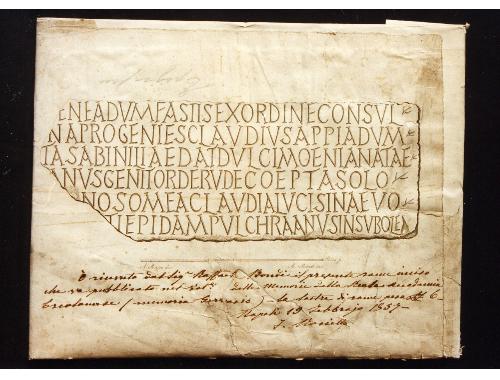 ENEADVMFASTISEXORDINECONSVL
NAPROGENIESCLAVDIVSAPPIADVM
TASABINIIIAEDATDVLCIMOENIANATAE
ANVSGENITORDERVDECOEPTASOLO
NOSOMEACLAVDIALVCISINAEVO
IEPIDAMPVLCHRAANVSINSVBOLEA
È ricevuto dal Sig. Raffaele il presente rame inciso
che va pubblicato nel Vol. delle Memorie della Reale Accademia
Ercolanese (memoria ) la lastra di rame pesa 6
Napoli 19 Febbrajo 1857